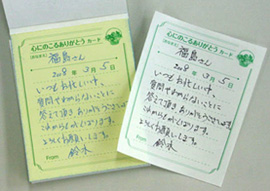 心にのこるありがとうカード
福島さん
2008年3月5日
いつもお忙しい中、
質問やわからないことに
答えて頂きありがとうございます。
これからも
よろしくお願いします。
From 鈴木
心にのこるありがとうカード
福島さん
2008年3月5日
いつもお忙しい中、
質問やわからないことに
答えて頂きありがとうございます。
これからも
よろしくお願いします。
From 鈴木